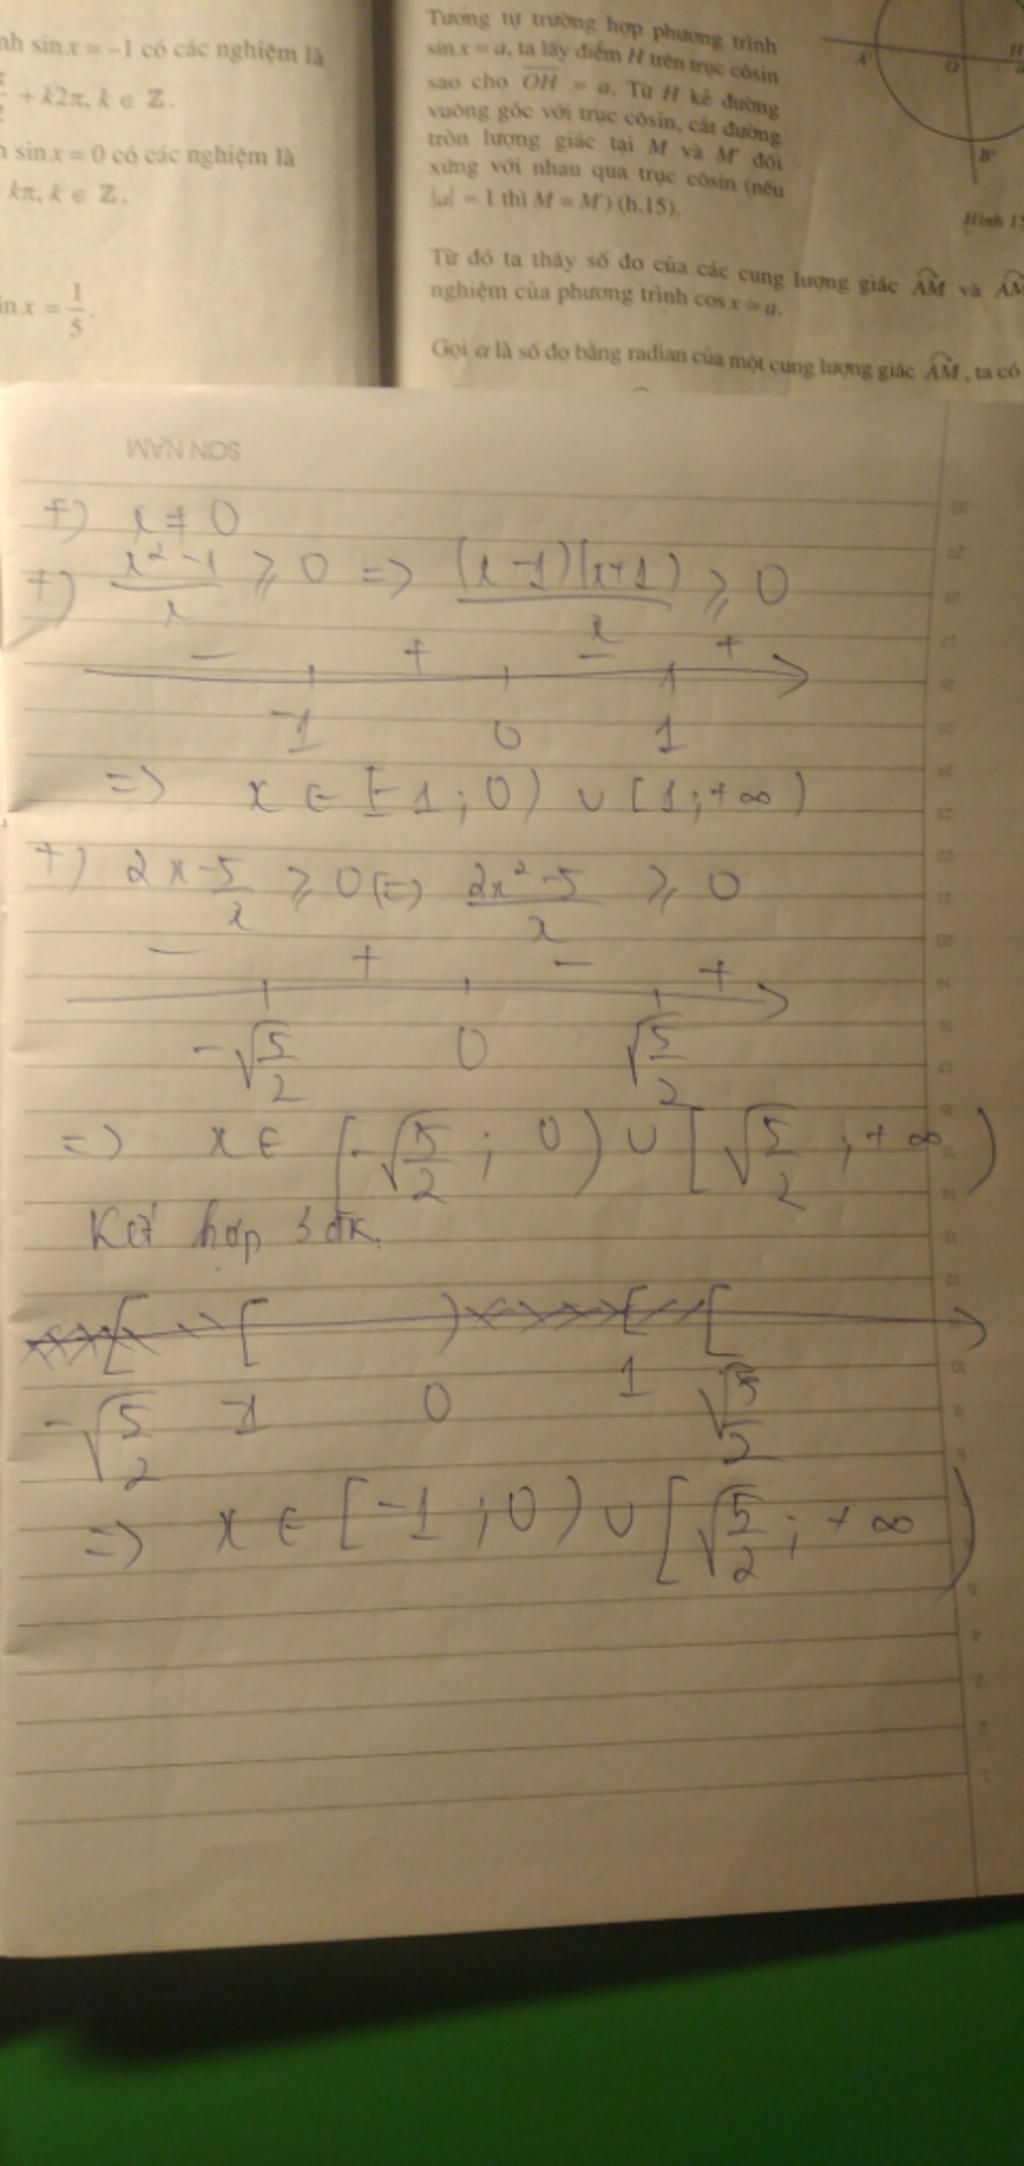 nh sin x = -1 có các nghiệm là
+ k2π, k ∈ ℤ.
sin x = 0 có các nghiệm là
kπ, k ∈ ℤ.
in x = 1/5.
Tương tự trường hợp phương trình
sin x = a, ta lấy điểm H trên trục côsin
sao cho OH = a. Từ H kẻ đường
vuông góc với trục côsin, cắt đường
tròn lượng giác tại M và M' đối
xứng với nhau qua trục côsin (nếu
|a| = 1 thì M ≡ M') (h.15).
A' O H
B'
Hình 15
Từ đó ta thấy số đo của các cung lượng giác AM và AM
nghiệm của phương trình cos x = a.
Gọi α là số đo bằng radian của một cung lượng giác AM, ta có
SON NAM
+) x ≠ 0
+) (x² - 1)/x ⩾ 0 => (x - 1)(x+1)/x ⩾ 0
- + - +
-1 0 1
=> x ∈ [-1 ; 0) ∪ [1 ; +∞)
+) 2x - 5/x ⩾ 0 (=) (2x² - 5)/x ⩾ 0
- + - +
-√(5/2) 0 √(5/2)
=> x ∈ [-√(5/2) ; 0) ∪ [√(5/2) ; +∞)
Kết hợp 3 đk.
[ [ ) [ [
-√(5/2) -1 0 1 √(5/2)
=> x ∈ [-1 ; 0) ∪ [√(5/2) ; +∞)